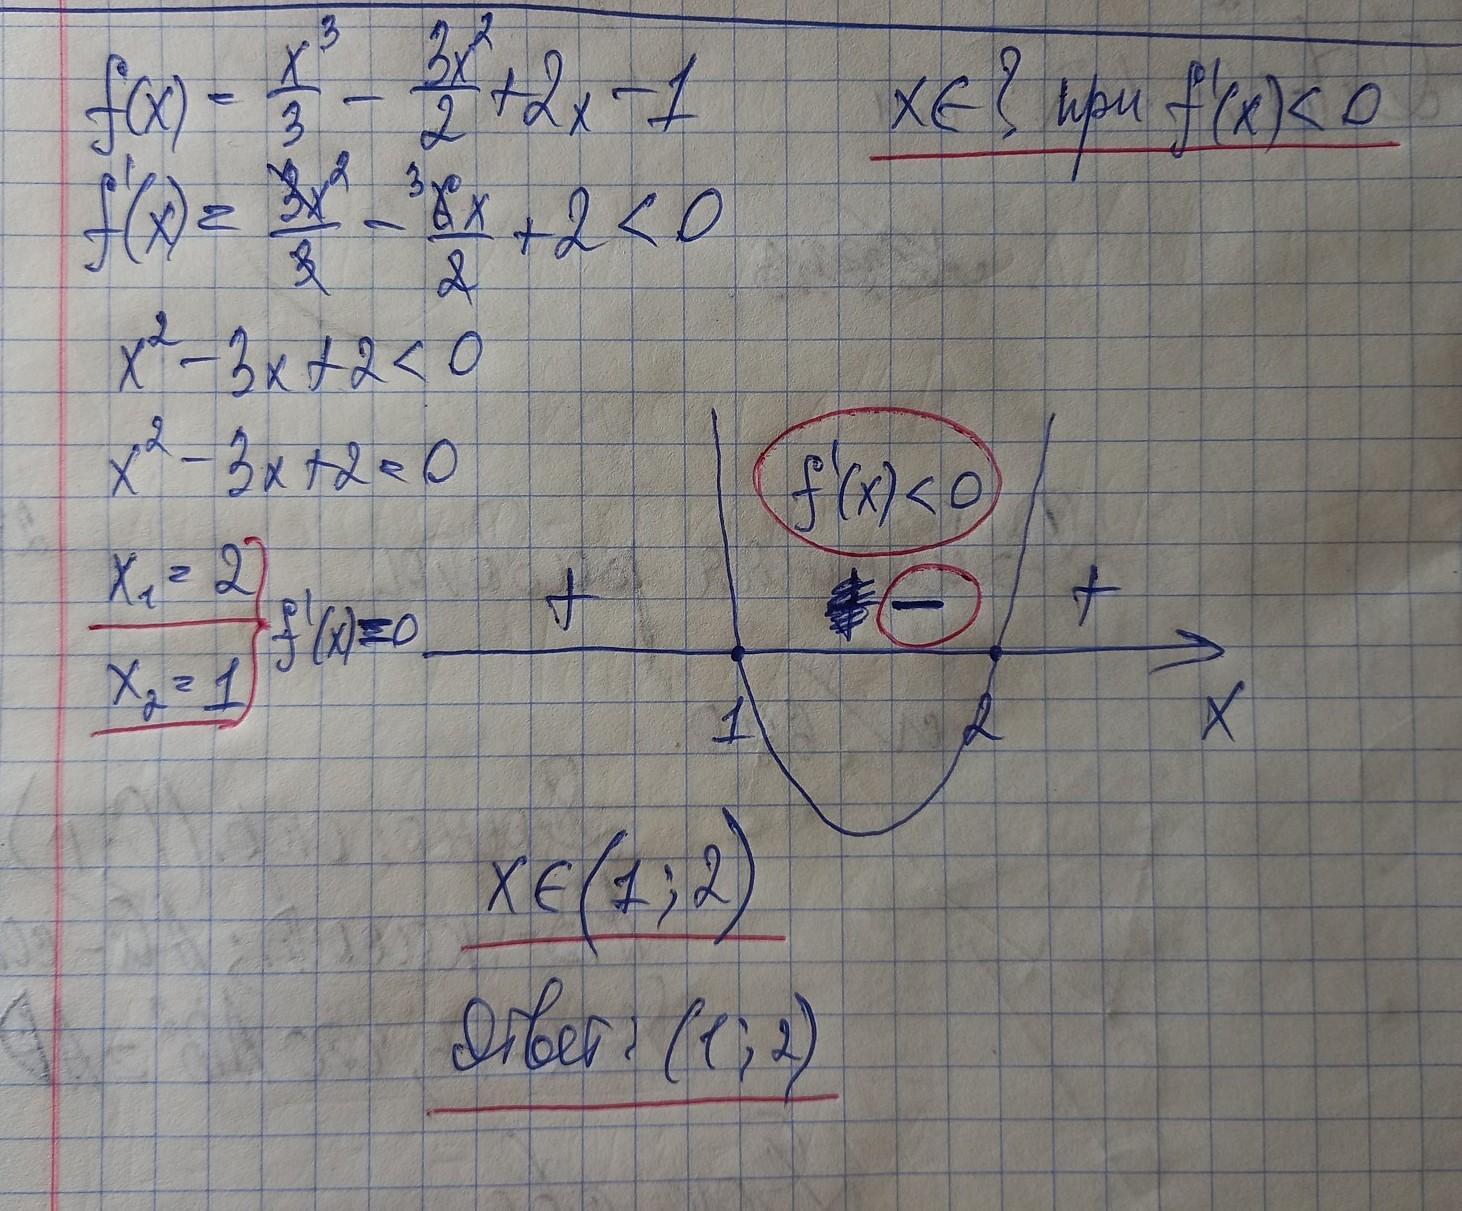 f(x) = x³/3 − 3x²/2 + 2x − 1
x∈? при f'(x) < 0
f'(x) = 3x²/3 − ³6x/2 + 2 < 0
x² − 3x + 2 < 0
x² − 3x + 2 = 0
f'(x) < 0
x₁ = 2
x₂ = 1
f'(x) = 0
+ − +
1 2 X
x∈(1; 2)
Ответ: (1; 2)